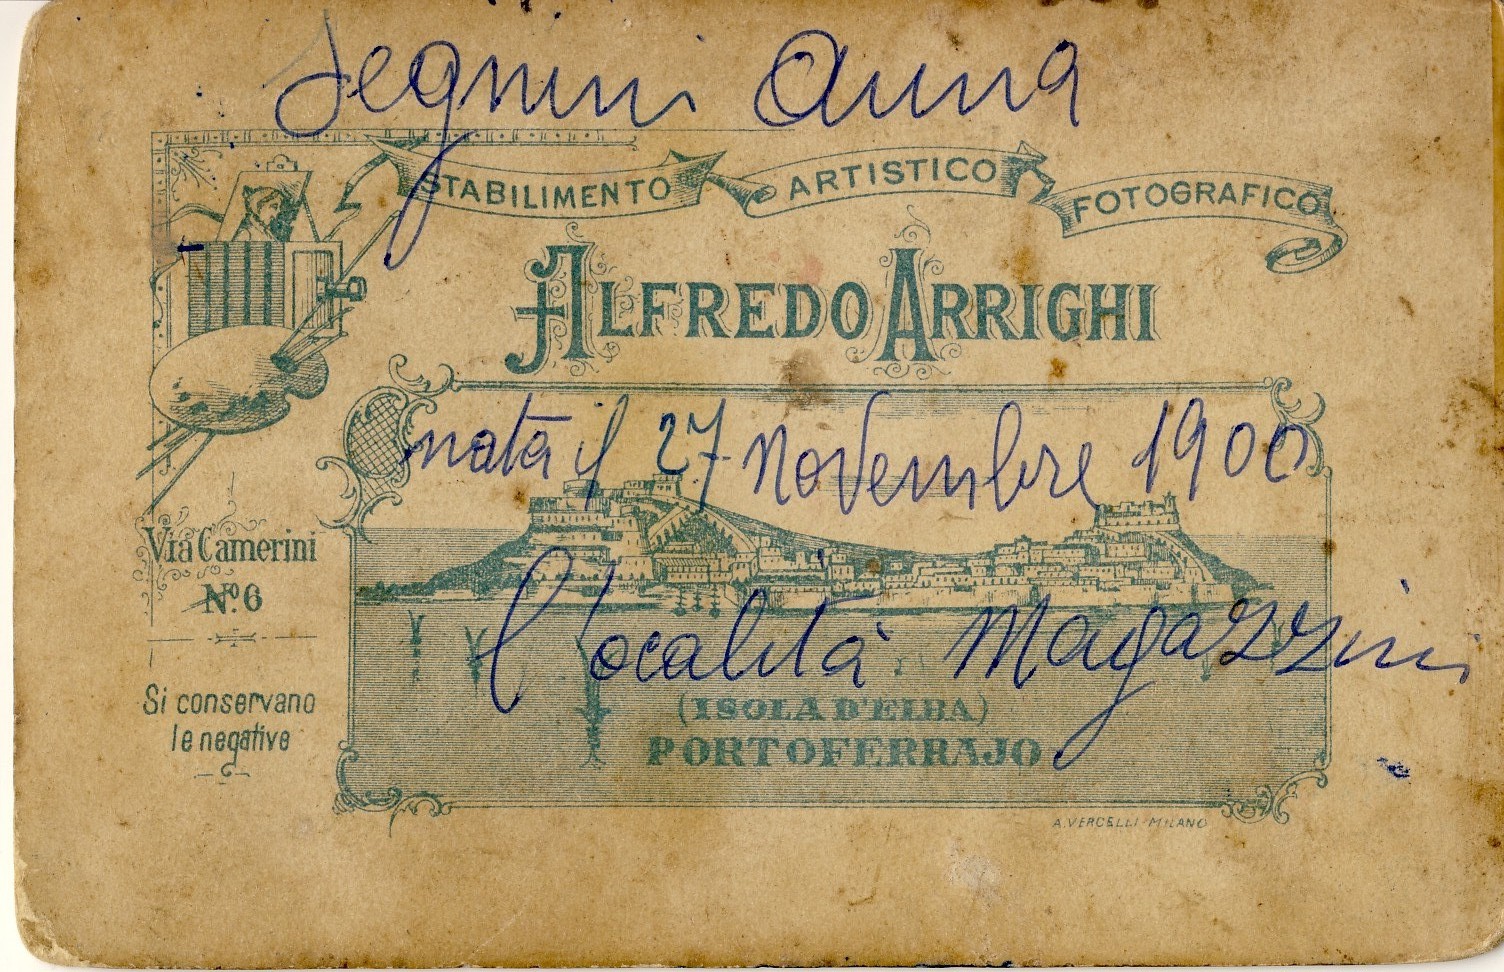 Segnini Anna
STABILIMENTO ARTISTICO FOTOGRAFICO
ALFREDO ARRIGHI
nata il 27 Novembre 1900
Via Camerini
Nº 6
località Magazzini
Si conservano
le negative
(ISOLA D'ELBA)
PORTOFERRAJO
A. VERCELLI - MILANO